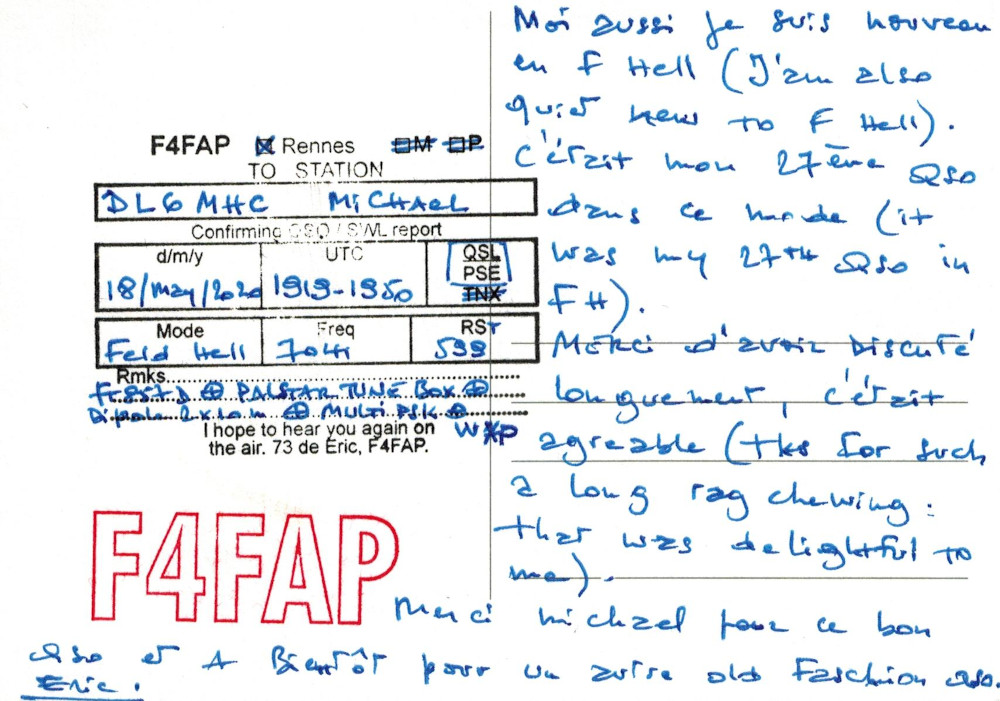 F4FAP ☒ Rennes ☐M ☐P
TO STATION
DL6MHC MiCHAEL
Confirming QSO / SWL report
d/m/y UTC QSL
PSE
TNX
18/may/2020 1919-1950
Mode Freq RST
Feld Hell 7044 599
Rmks
PALSTAR TUNE BOX ⊕
Dipole 2 x 10 m ⊕ MULTI PSK ⊕
I hope to hear you again on
the air. 73 de Eric, F4FAP.
F4FAP
Moi aussi je suis nouveau
en F Hell (J'am also
quiet new to F Hell).
C'était mon 27ème QSO
dans ce mode (it
was my 27TH QSO in
FH).
Merci d'avoir discuté
longuement, c'était
agreable (tks for such
a long rag chewing :
that was delightful to
me).
Merci michael pour ce bon
QSO et A Bientôt pour un autre old Faschion QSO.
Eric.